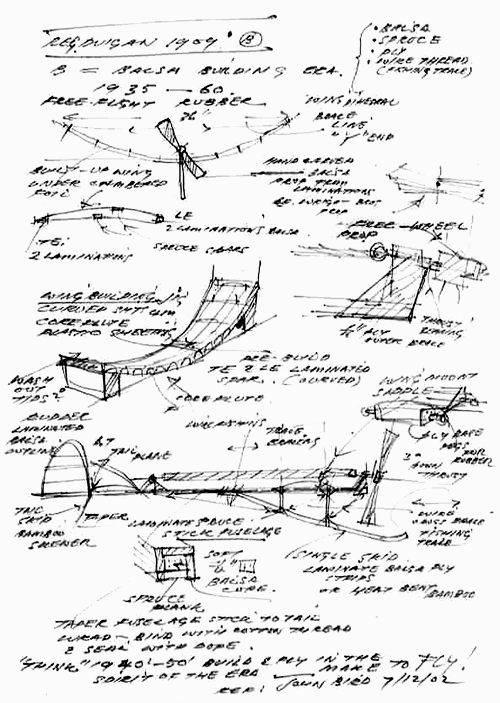 REG. DUIGAN 1909. B
B = BALSA BUILDING ERA.
1935 — 60.
FREE FLIGHT RUBBER
• BALSA
• SPRUCE
• PLY
• WIRE THREAD
(FISHING TRACE)
36"
WING DIHEDRAL
BRACE
LINE
"Y" END
BUILT-UP WING
UNDER CAMBERED
FOIL
HAND CARVED
BALSA
PROP FROM
LAMINATIONS
PROP
LE
2 LAMINATIONS BALSA
TE:
2 LAMINATIONS
SPRUCE SPARS
FREE-WHEEL
PROP
WING BUILDING JIG
CURVED
CORE FLUTE
PLASTIC SHEETS
THRUST
BEARING
1/16" PLY
OUTER BRACE
PRE-BUILD
TE & LE LAMINATED
SPAR. (CURVED)
CORE FLUTE
WASH
OUT
TIPS?
WING MOUNT
SADDLE
RUDDER
LAMINATED
BALSA
OUTLINE
TAIL
PLANE
TRACE
BRACING
PLY BASE
PEGS
FOR
RUBBER
3°
DOWN
THRUST
TAIL
SKID
BAMBOO
SKEWER
TAPER
LAMINATE SPRUCE
STICK FUSELAGE
WIRE
CROSS BRACE
FISHING
TRACE
SOFT
1/4"
BALSA
CORE.
SINGLE SKID
LAMINATE BALSA PLY
STRIPS
OR HEAT BENT BAMBOO
SPRUCE
PLANK
TAPER FUSELAGE STICK TO TAIL
BIND WITH COTTON THREAD
& SEAL WITH DOPE.
"THINK" 1940'-50' BUILD & FLY IN THE
SPIRIT OF THE ERA MAKE TO FLY!
REF: JOHN BIRD 7/12/02